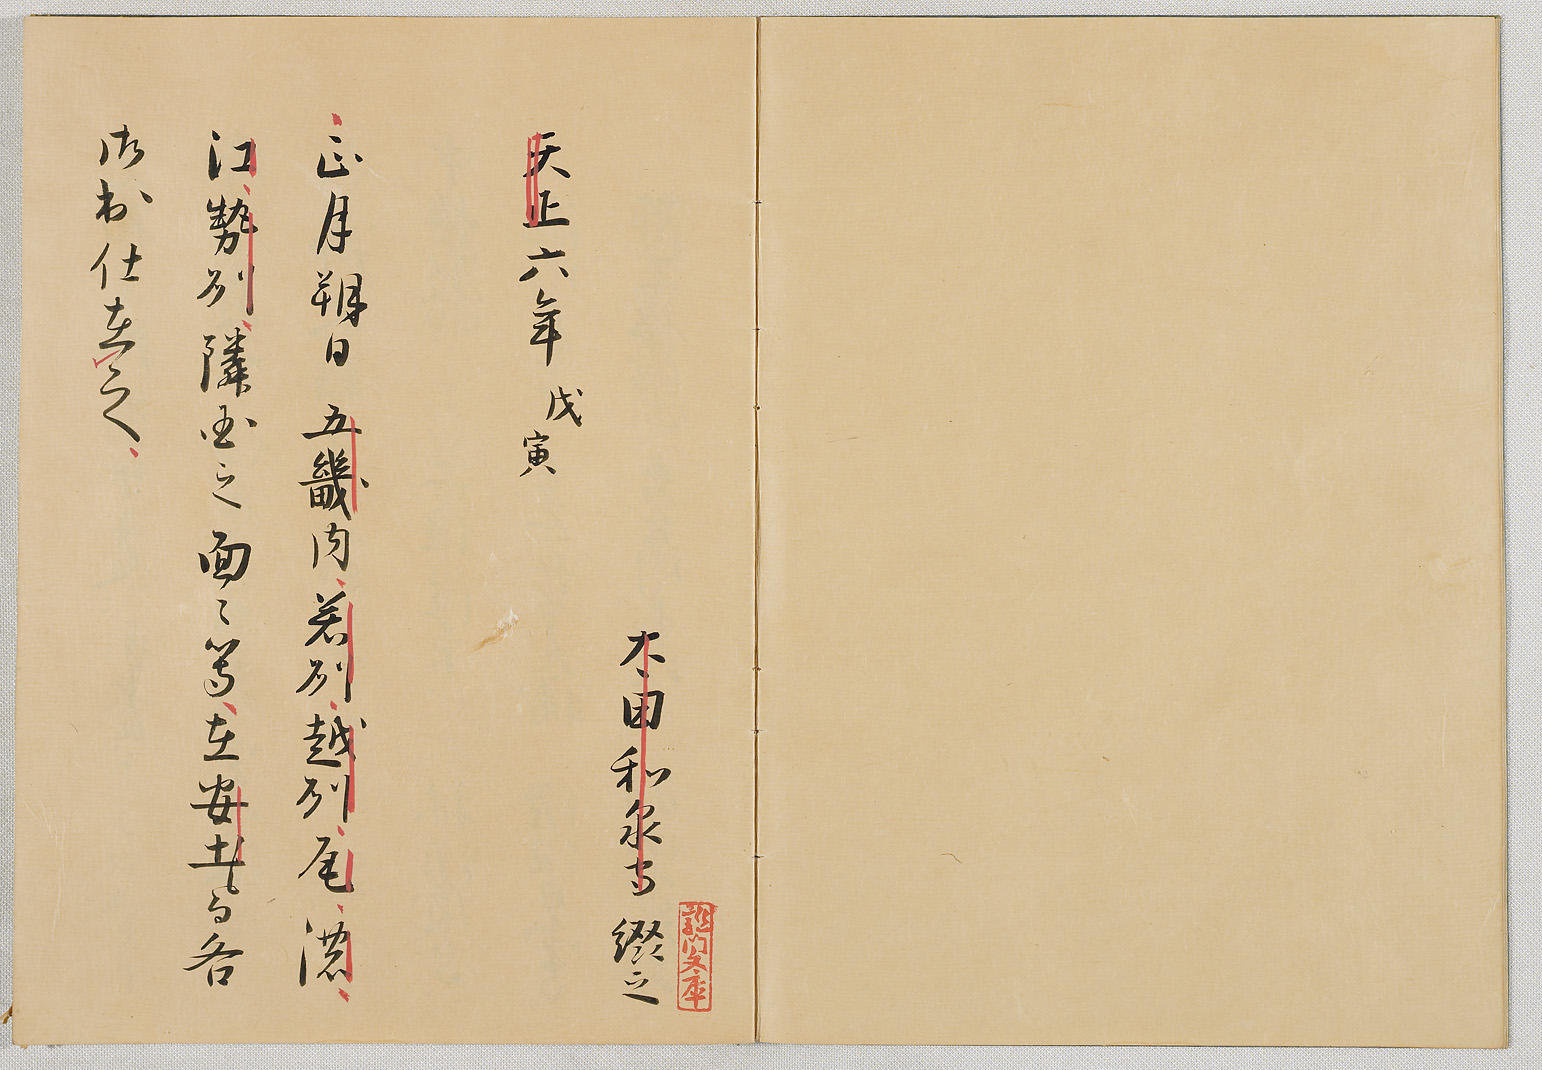 太田和泉守綴之
天正六年戊寅
正月朔日五畿内、若州、越州、尾、濃、
江、勢州、隣国之面〻等、在安土候而各
御出仕在之、
文庫